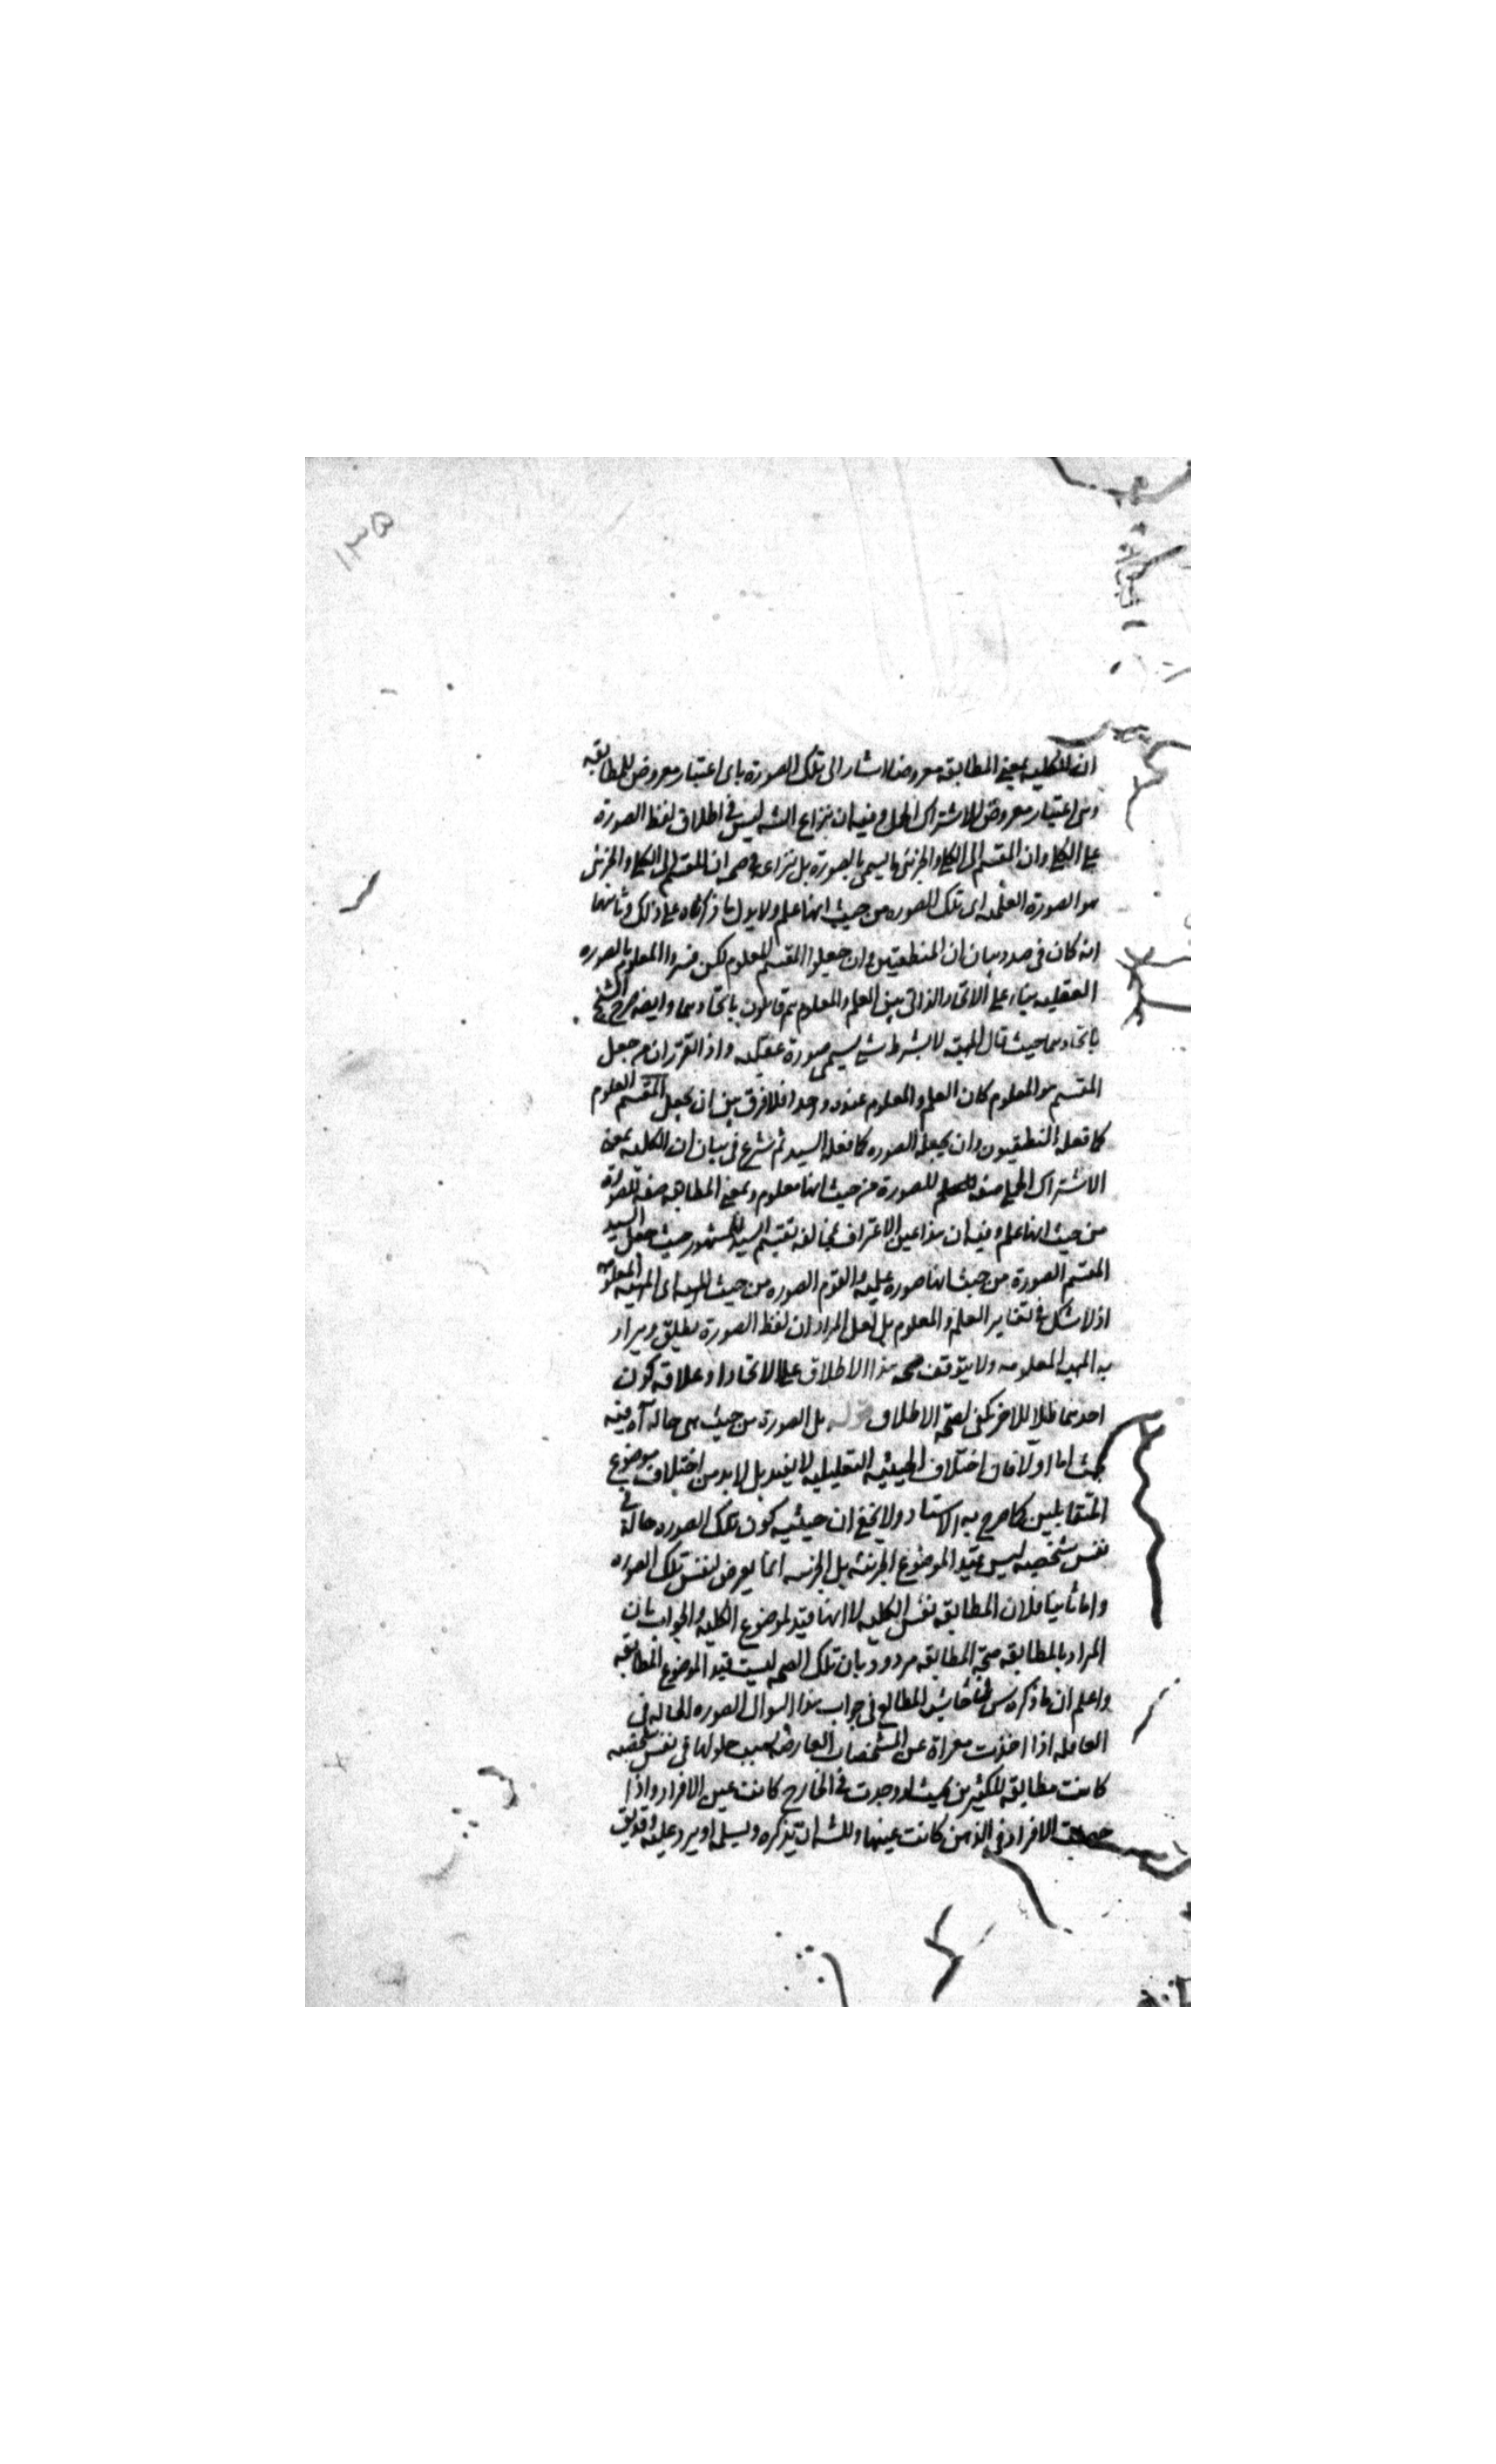 ١٣٥
ان الكليه بمعنى المطابقه معروضها اشار الى تلك الصورة باى اعتبار معروض للمطابقه
وباى اعتبار معروض للاشتراك الحمل وفيه ان نزاع الشه ليس فى اطلاق لفظ الصورة
على الكلى وان المقسم الى الكلى والجزئى ما يسمى بالصورة بل نزاعه فى صحه ان المقسم الى الكلى والجزئى
هو الصورة العقليه اى تلك الصوره من حيث انها علم ولا يدل ما ذكرناه على ذلك وثانيها
انه كان فى صدد بيان ان المنطقيين وان جعلوا المقسم المعلوم لكن فسروا المعلوم بالصوره
العقليه بناء على الاتحاد الذاتى بين العلم والمعلوم ثم قائلون باتحادهما وايضا صرح الشيخ
باتحادهما حيث قال المهيه لا بشرط شئ يسمى صورة عقليه واذا تقرر ان من جعل
المقسم هو المعلوم كان العلم والمعلوم عنده واحدا فلا فرق بين ان يجعل المقسم المعلوم
كما فعله المنطقيون وان يجعله الصوره كما فعله السيد ثم شرع فى بيان ان الكليه بمعنى
الاشتراك الحملى صفه للصورة من حيث انها معلوم وبمعنى المطابقه صفه للصورة
من حيث انها علم وفيه ان هذا عين الاعتراف بمخالفه تقسيم السيد للمشهور حيث جعل السيد
المقسم الصورة من حيث انها صوره علميه والقوم الصوره من حيث المهيه اى المهيه المعلومه
اذ لا شك فى تغاير العلم والمعلوم بل لعل المراد ان لفظ الصورة يطلق ويراد
به المهيه المعلومه ولا يتوقف صحه هذا الاطلاق على الاتحاد اذ علاقه كون
احدهما ظلا للاخر تكفى لصحة الاطلاق قوله بل الصورة من حيث هى حاله آه فيه
بحث اما اولا فان اختلاف الحيثيه التعليليه لا يفيد بل لابد من اختلاف موضوع
المتقابلين كما صرح به الاستاد ولا يخفى ان حيثيه كون تلك الصوره حالة فى
نفس شخصيه ليس بقيد الموضوع الجزئيه بل الجزئيه انما يعرض لنفس تلك الصوره
واما ثانيا فلان المطابقه نفس الكليه لا انها قيد لموضوع الكليه والجواب بان
المراد بالمطابقه صحة المطابقه مردود بان تلك الصحه ليست قيد الموضوع المطابقه
واعلم ان ما ذكره س فى حاشيه المطالع فى جواب هذا السوال الصوره الحاله فى
العاقله اذا اخذت معراة عن المشخصات العارضه بسبب حلولها فى نفس شخصيه
كانت مطابقه للكثيرين بحيث لو وجدت فى الخارج كانت عين الافراد واذا
حصلت الافراد فى الذهن كانت عينها وللشه ان يذكره ويسلم او يرد عليه وقد يق